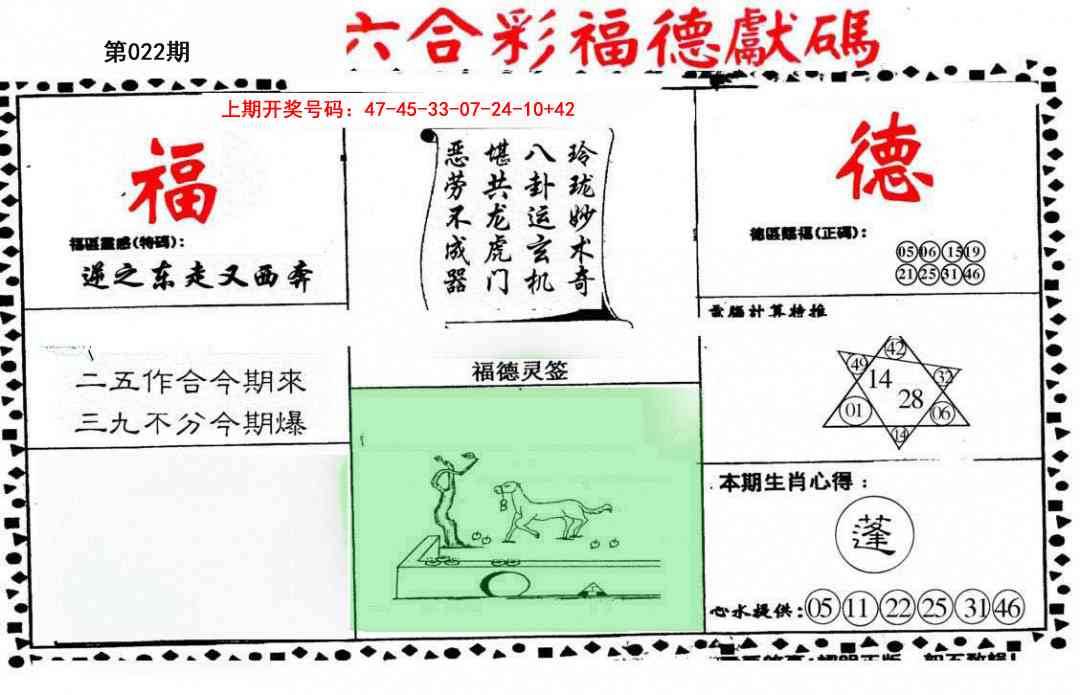 第022期
六合彩福德獻碼
上期开奖号码：47-45-33-07-24-10+42
福
福區靈感(特碼)：
逆之东走又西奔
二五作合今期來
三九不分今期爆
玲珑妙术奇
八卦运玄机
堪共龙虎门
恶劳不成器
福德灵签
德
德區賜福(正碼)：
05 06 15 19
21 25 31 46
42
49 32
14
28
01 06
14
本期生肖心得：
蓬
心水提供：05 11 22 25 31 46